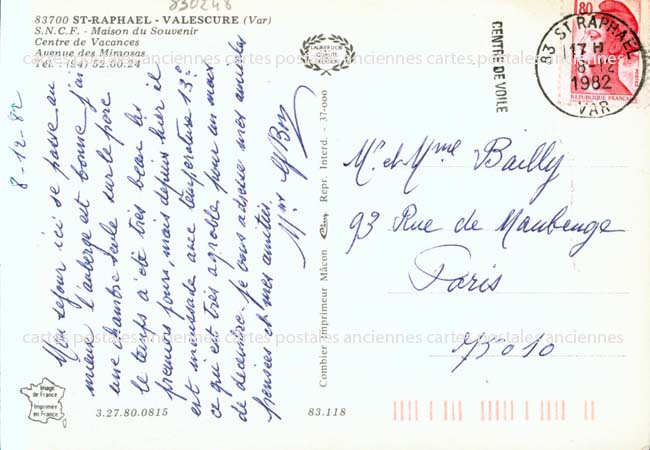 830248
83700 ST-RAPHAEL - VALESCURE (Var)
S.N.C.F. - Maison du Souvenir
Centre de Vacances
Avenue des Mimosas
Tél. : (94) 52.00.24
8-12-82
Mon séjour ici se passe au
mieux l'auberge est bonne j'ai
une chambre seule sur le parc
le temps a été très beau les
premiers jours, mais depuis hier il
est maussade avec température 13°
ce qui est très agréable pour un mois
de décembre. Je vous adresse mes amicales
pensées et mes amitiés.
Mme
LAURIER D'OR
DE LA
QUALITE
Combier Imprimeur Mâcon
Repr. Interd. - 37-000
CENTRE DE VOILE
0,80
REPUBLIQUE FRANÇAISE
83 ST RAPHAEL
17 H
8-12
1982
VAR
Mr et Mme Bailly
93 Rue de Maubeuge
Paris
75010
cartes postales anciennes cartes postales anciennes cartes postales anciennes
cartes postales anciennes cartes postales anciennes cartes postales anciennes
Image
de France
Imprimée
en France
3.27.80.0815
83.118